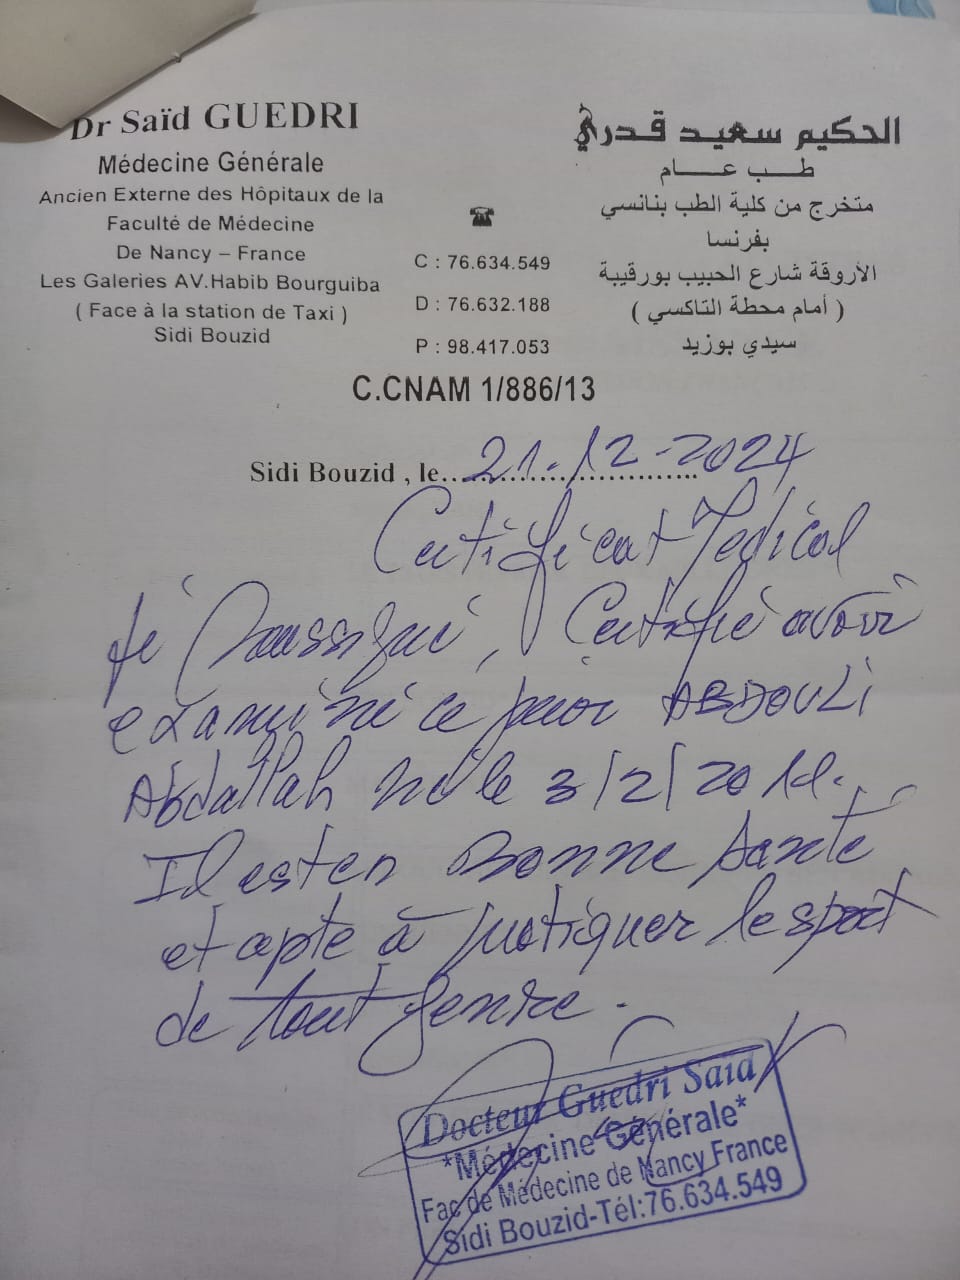 Dr Saïd GUEDRI
Médecine Générale
Ancien Externe des Hôpitaux de la
Faculté de Médecine
De Nancy – France
Les Galeries AV.Habib Bourguiba
( Face à la station de Taxi )
Sidi Bouzid
☎
C : 76.634.549
D : 76.632.188
P : 98.417.053
الحكيم سعيد قدري
طب عام
متخرج من كلية الطب بنانسي
بفرنسا
الأروقة شارع الحبيب بورقيبة
( أمام محطة التاكسي )
سيدي بوزيد
C.CNAM 1/886/13
Sidi Bouzid , le 21-12-2024
Certificat Medical
Je Soussigné, Certifié avoir
examiné ce jour ABDOULI
Abdallah né le 3/2/2011.
Il est en Bonne santé
et apte à pratiquer le sport
de tout genre.
Docteur Guedri Saïd
*Médecine Générale*
Fac de Médecine de Nancy France
Sidi Bouzid-Tél:76.634.549